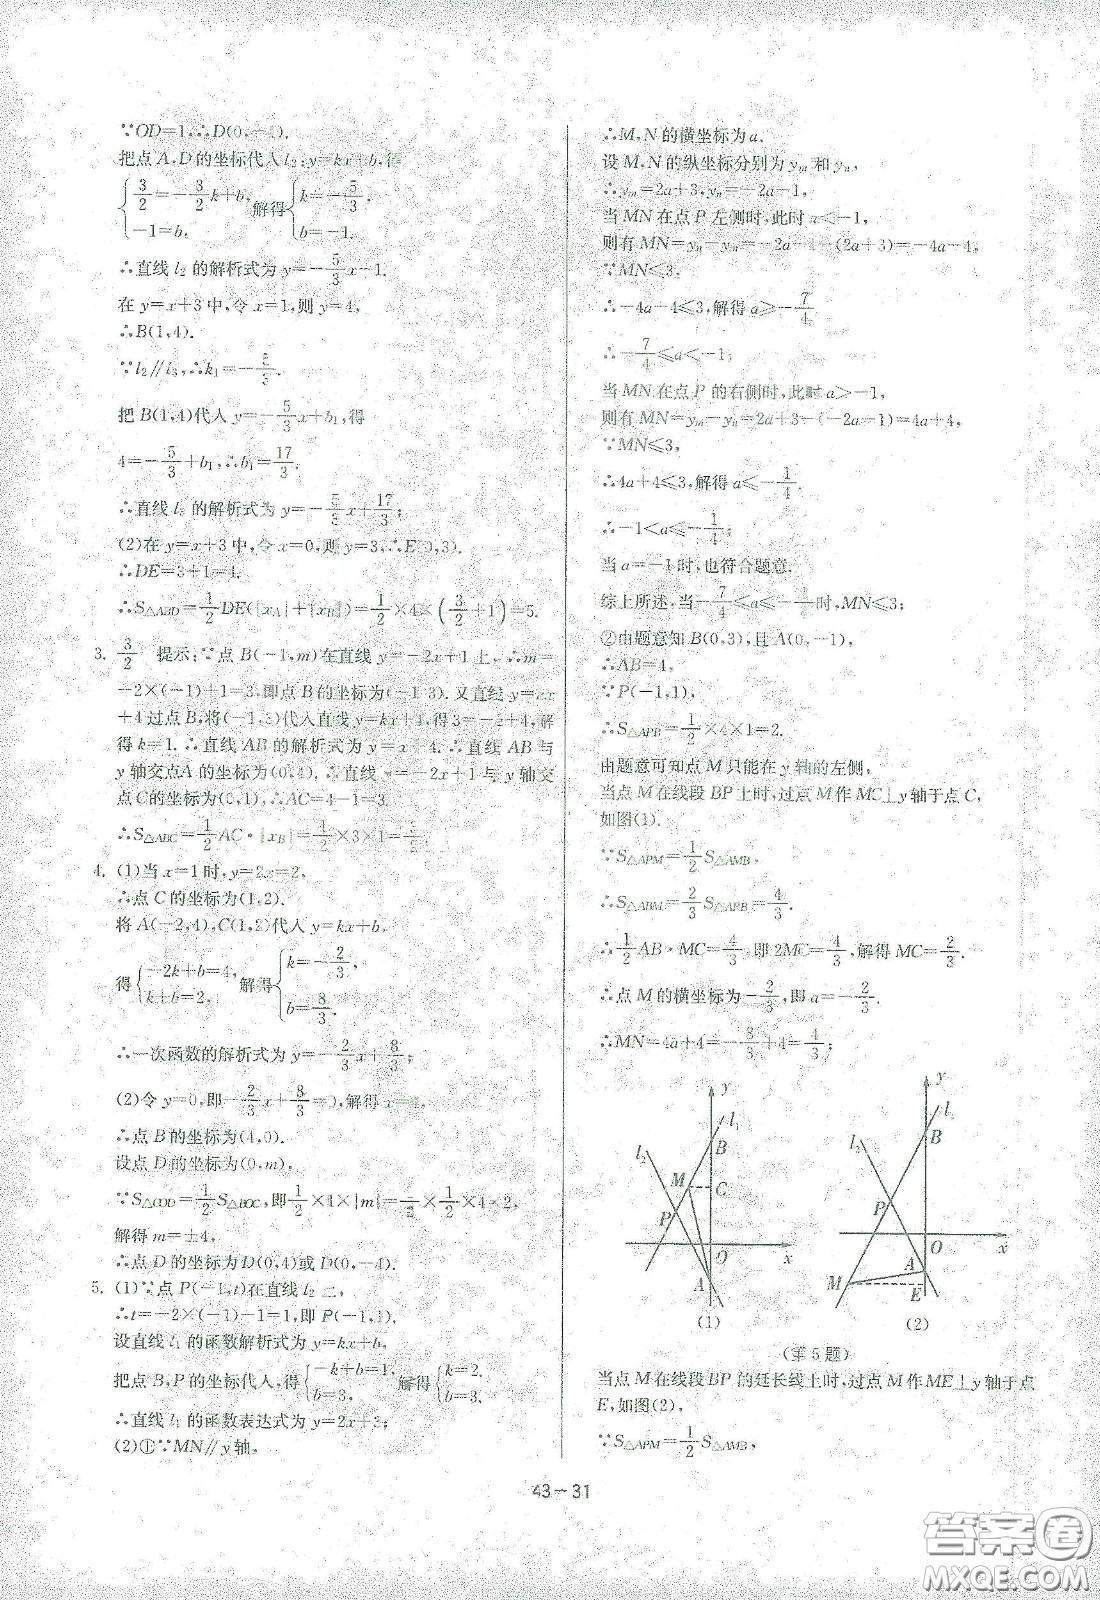 ∵OD=1,∴D(0,-1).
把点A,D的坐标代入l₂:y=kx+b,得
{3/2=-3/2k+b, -1=b, 解得{k=-5/3, b=-1.
∴直线l₂的解析式为y=-5/3x-1.
在y=x+3中,令x=1,则y=4,
∴B(1,4).
∵l₂∥l₃,∴k₁=-5/3.
把B(1,4)代入y=-5/3x+b₁,得
4=-5/3+b₁,∴b₁=17/3.
∴直线l₃的解析式为y=-5/3x+17/3;
(2)在y=x+3中,令x=0,则y=3,∴E(0,3).
∴DE=3+1=4.
∴S△ABD=1/2DE(|xA|+|xB|)=1/2×4×(3/2+1)=5.
3. 3/2 提示:∵点B(-1,m)在直线y=-2x+1上,∴m=
-2×(-1)+1=3,即点B的坐标为(-1,3).又直线y=kx
+4过点B,将(-1,3)代入直线y=kx+4,得3=-k+4,解
得k=1.∴直线AB的解析式为y=x+4.∴直线AB与
y轴交点A的坐标为(0,4).∴直线y=-2x+1与y轴交
点C的坐标为(0,1),∴AC=4-1=3.
∴S△ABC=1/2AC·|xB|=1/2×3×1=3/2.
4. (1)当x=1时,y=2x=2,
∴点C的坐标为(1,2).
将A(-2,4),C(1,2)代入y=kx+b,
得{-2k+b=4, k+b=2, 解得{k=-2/3, b=8/3.
∴一次函数的解析式为y=-2/3x+8/3;
(2)令y=0,即-2/3x+8/3=0,解得x=4.
∴点B的坐标为(4,0).
设点D的坐标为(0,m),
∵S△COD=1/2S△BOC,即1/2×1×|m|=1/2×1/2×4×2,
解得m=±4,
∴点D的坐标为D(0,4)或D(0,-4).
5. (1)∵点P(-1,t)在直线l₂上,
∴t=-2×(-1)-1=1,即P(-1,1).
设直线l₁的函数解析式为y=kx+b,
把点B,P的坐标代入,得{-k+b=1, b=3, 解得{k=2, b=3.
∴直线l₁的函数表达式为y=2x+3;
(2)①∵MN∥y轴,
∴M,N的横坐标为a.
设M,N的纵坐标分别为yₘ和yₙ,
∴yₘ=2a+3,yₙ=-2a-1,
当MN在点P左侧时,此时a<-1,
则有MN=yₙ-yₘ=-2a-1-(2a+3)=-4a-4,
∵MN≤3,
∴-4a-4≤3,解得a≥-7/4.
∴-7/4≤a<-1;
当MN在点P的右侧时,此时a>-1,
则有MN=yₘ-yₙ=2a+3-(-2a-1)=4a+4,
∵MN≤3,
∴4a+4≤3,解得a≤-1/4.
∴-1<a≤-1/4;
当a=-1时,也符合题意.
综上所述,当-7/4≤a≤-1/4时,MN≤3;
②由题意知B(0,3),且A(0,-1),
∴AB=4,
∵P(-1,1),
∴S△APB=1/2×4×1=2.
由题意可知点M只能在y轴的左侧,
当点M在线段BP上时,过点M作MC⊥y轴于点C,
如图(1).
∵S△APM=1/2S△AMB,
∴S△ABM=2/3S△APB=4/3.
∴1/2AB·MC=4/3,即2MC=4/3,解得MC=2/3.
∴点M的横坐标为-2/3,即a=-2/3.
∴MN=4a+4=-8/3+4=4/3;
y
l₁
B
l₂
M
C
P
O
x
A
(1)
y
l₁
l₂
B
P
O
x
A
M
E
(2)
(第5题)
当点M在线段BP的延长线上时,过点M作ME⊥y轴于点
E,如图(2),
∵S△APM=1/2S△AMB,
43-31
答案圈
MXQE.COM